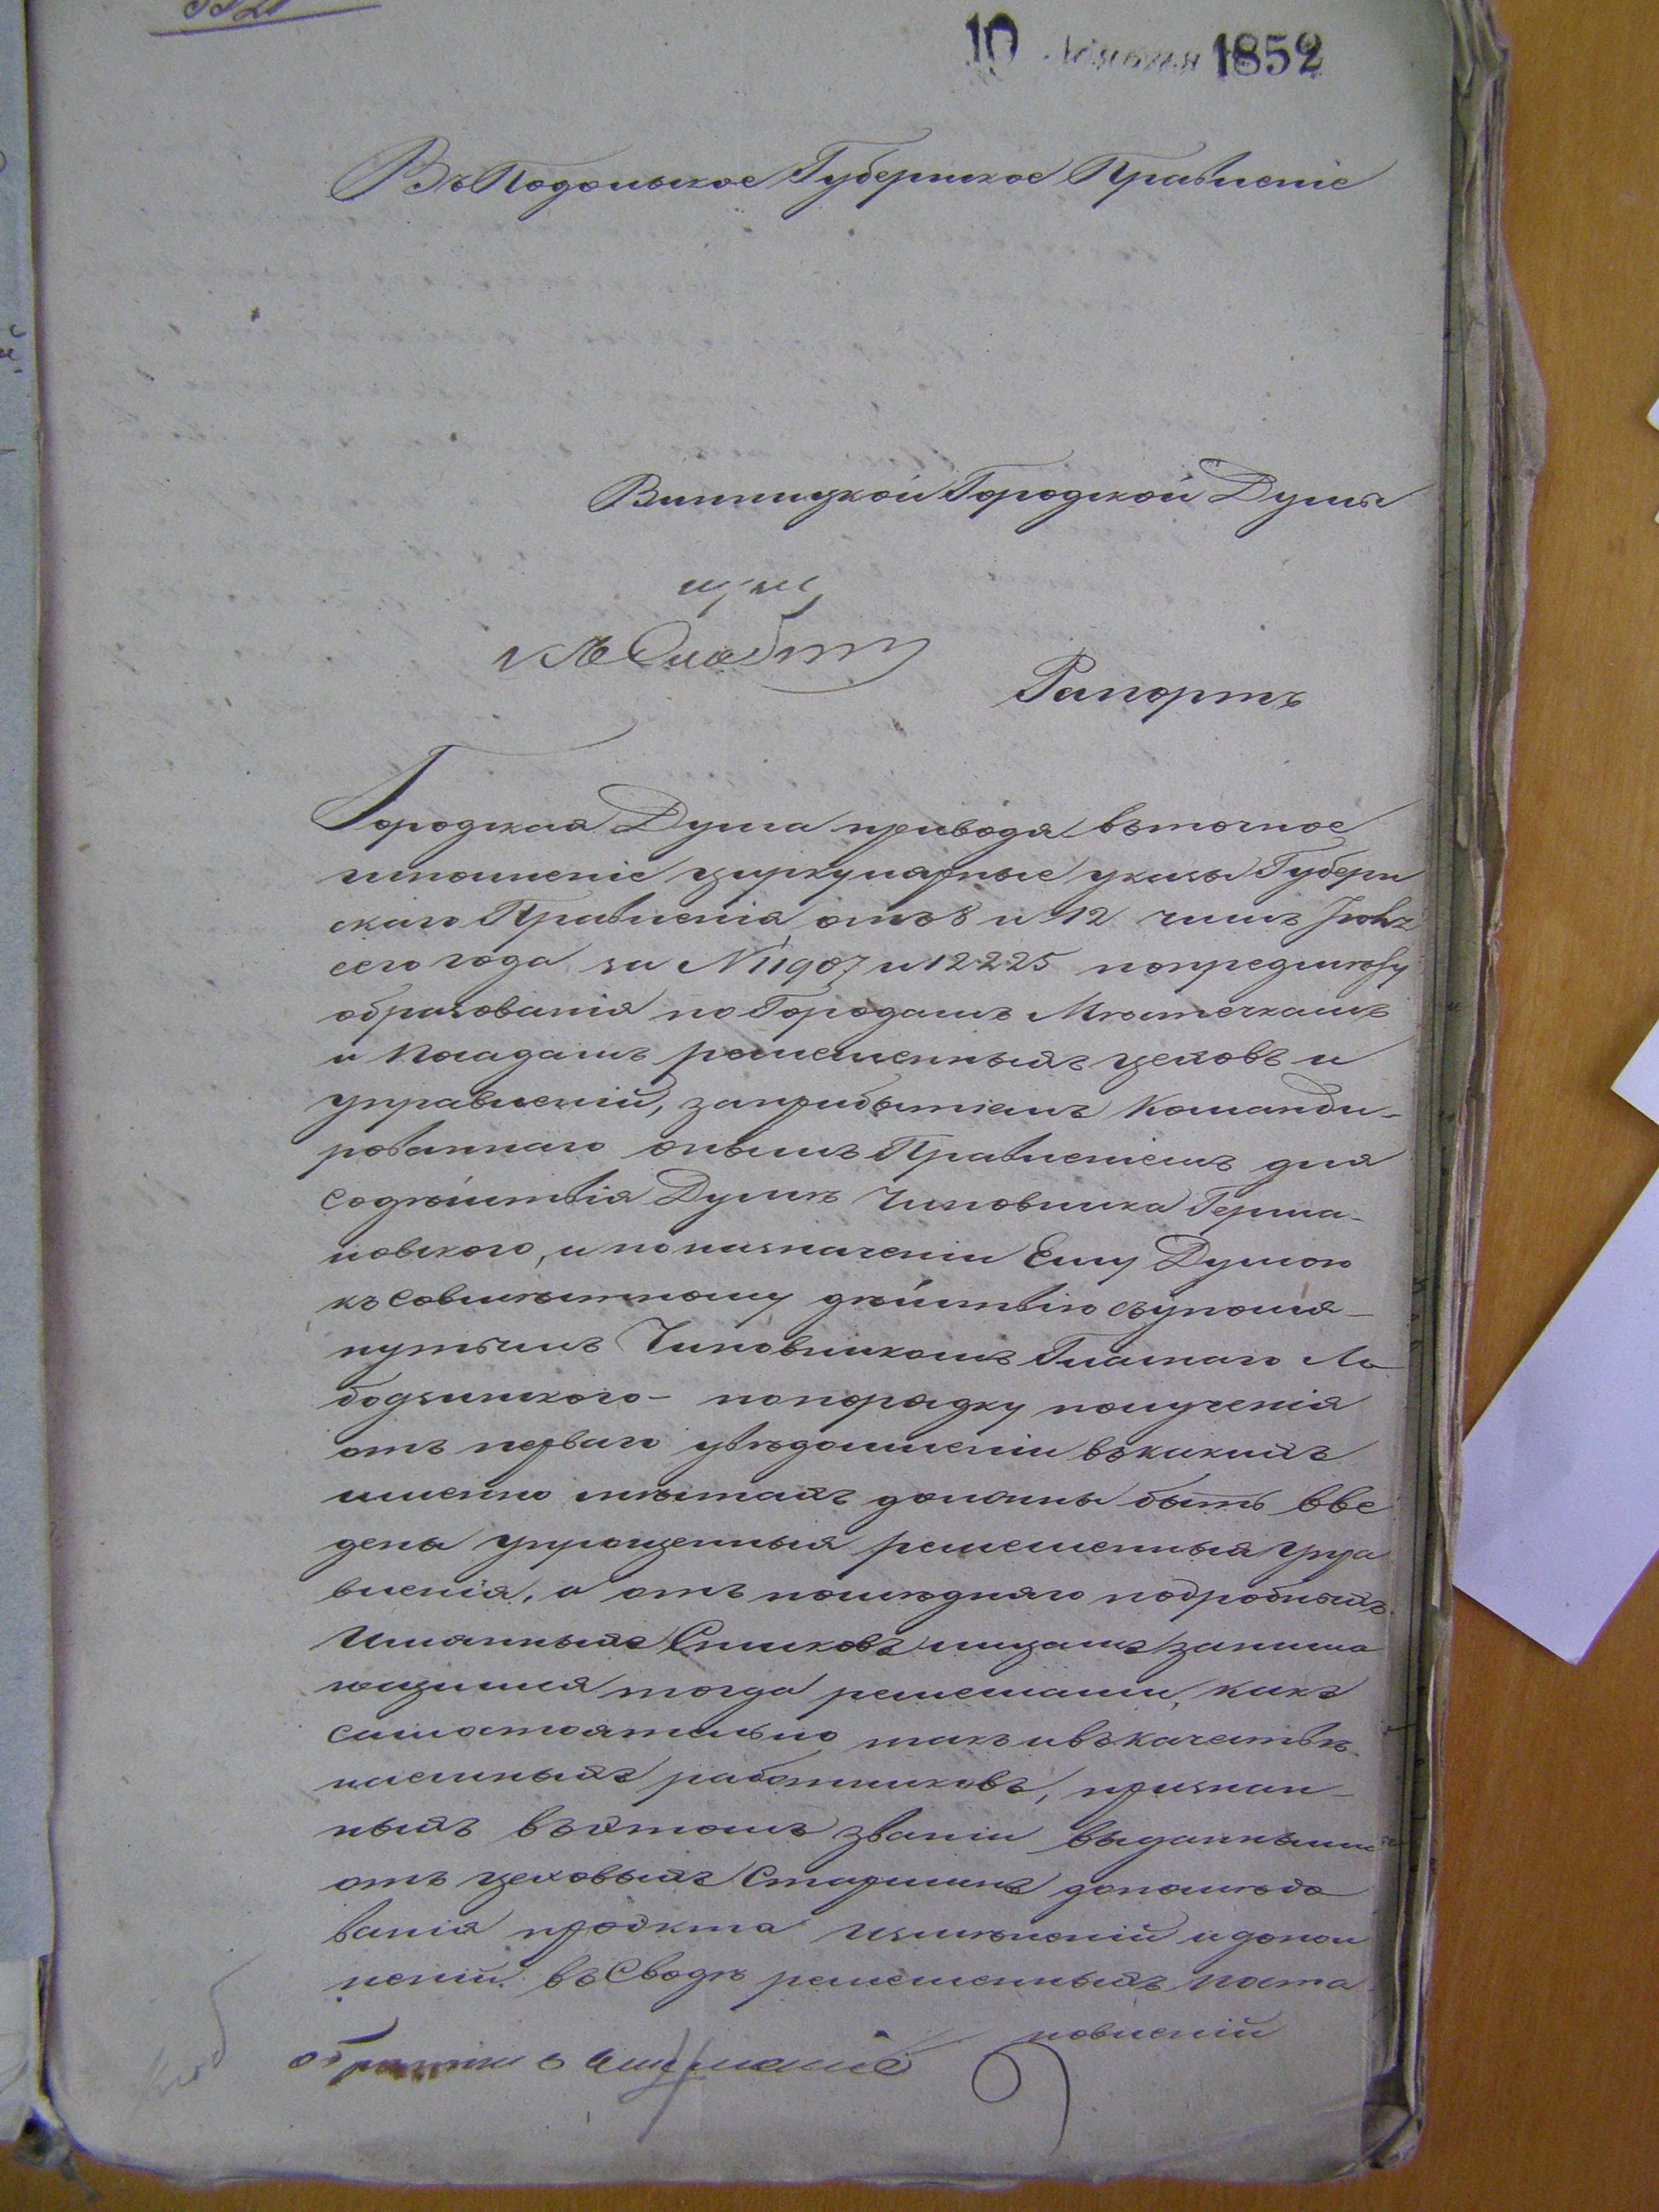 10 1852
Въ Подольское Губернское Правленіе
Винницкой Городской Думы
Рапортъ
Городская Дума приводя въ точное
исполненіе циркулярные указы Губерн
скаго Правленія отъ 8 и 12 числъ Іюля
сего года за №11907 и 12225 по предмету
образованія по Городамъ Мѣстечкамъ
и Посадамъ ремесленныхъ цеховъ и
управленій, за прибытіемъ Команди-
рованнаго онымъ Правленіемъ для
содѣйствія Думѣ Чиновника Герма-
новского, и по назначеніи Ему Думою
къ совмѣстному дѣйствію съ упомя-
нутымъ Чиновникомъ Гласнаго Ло
бодзинского - по порядку полученія
отъ перваго увѣдомленіи въ какихъ
именно мѣстахъ должны быть вве
дены упрощенныя ремесленныя упра
вленія, а отъ послѣдняго подробныхъ
Имянныхъ Списковъ лицамъ занима
ющимся тогда ремеслами, какъ
самостоятельно такъ и въ качествѣ
наемныхъ работниковъ, признан-
ныхъ въ этомъ званіи выданными
отъ цеховыхъ Старшинъ до послѣдо
ванія проэкта измѣненій и допол
неній въ Сводѣ ремесленныхъ поста
новленій